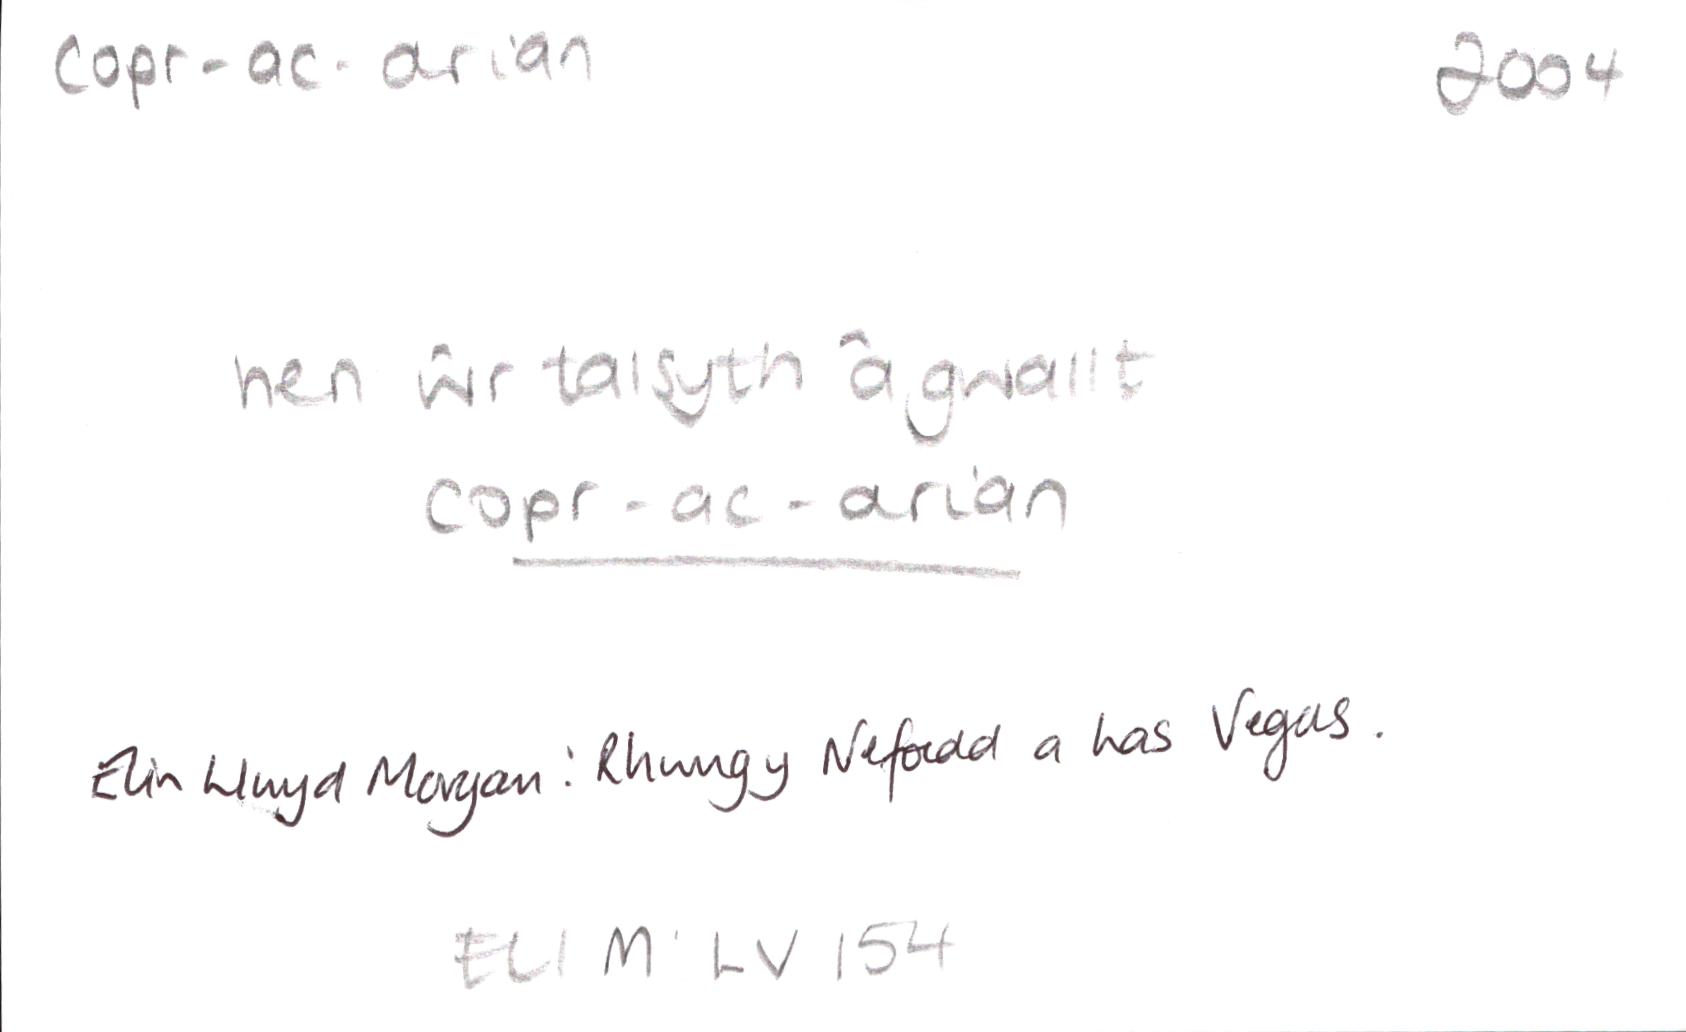 copr-ac-arian 2004
hen ŵr talsyth â gwallt
copr-ac-arian
Elin Llwyd Morgan: Rhwng y Nefoedd a Las Vegas.
ELlM: LV 154